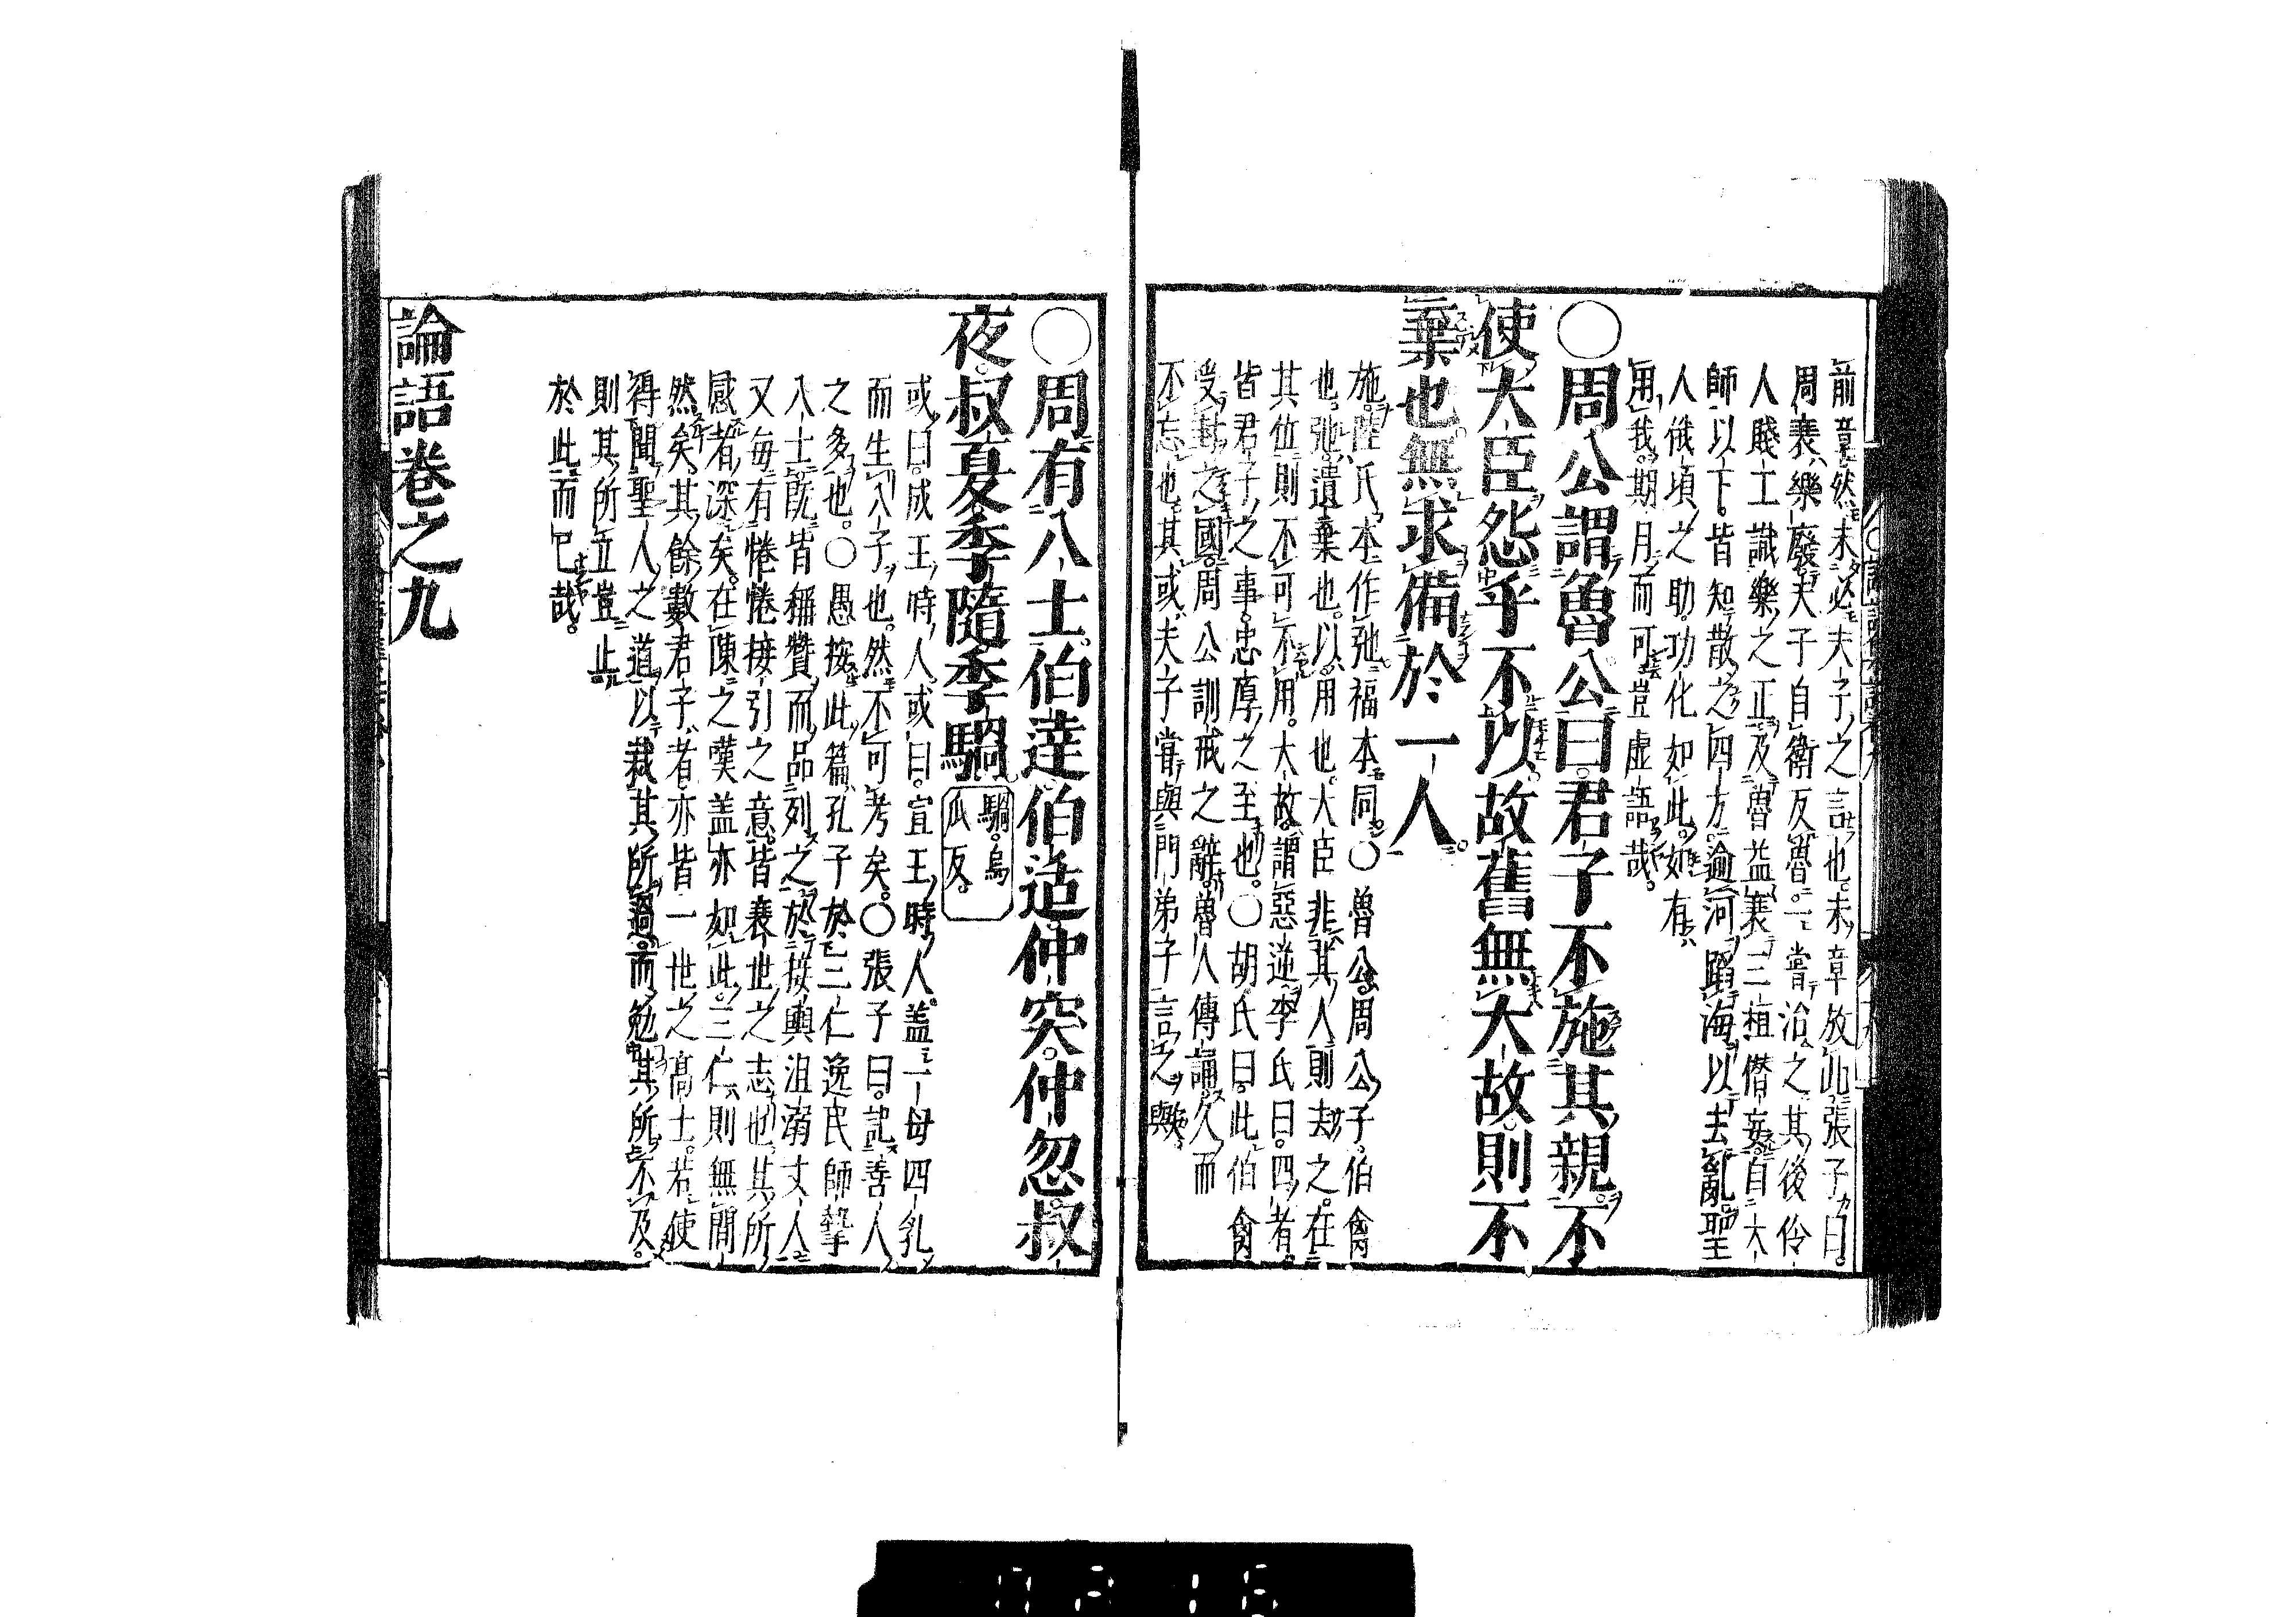 前章然未必夫子之言也未章放此張子曰
周衰樂廢夫子自衛反魯一嘗治之其後伶
人賤工識樂之正及魯益衰三桓僭妄自大
師以下皆知散之四方逾河蹈海以去亂聖
人俄頃之助功化如此如有
用我期月而可豈虛語哉
○周公謂魯公曰君子不施其親不
使大臣怨乎不以故舊無大故則不
棄也無求備於一人
施陸氏本作弛福本同○魯公周公子伯禽
也弛遺棄也以用也大臣非其人則去之在
其位則不可不用大故謂惡逆李氏曰四者
皆君子之事忠厚之至也○胡氏曰此伯禽
受封之國周公訓戒之辭魯人傳誦久而
不忘也其或夫子嘗與門弟子言之歟
○周有八士伯達伯适仲突仲忽叔
夜叔夏季隨季騧
騧烏
瓜反
或曰成王時人或曰宣王時人盖一母四乳
而生八子也然不可考矣○張子曰記善人
之多也○愚按此篇孔子於三仁逸民師摯
八士既皆稱贊而品列之於接輿沮溺丈人
又每有惓惓接引之意皆衰世之志也其所
感者深矣在陳之嘆盖亦如此三仁則無間
然矣其餘數君子者亦皆一世之高士若使
得聞聖人之道以裁其所過而勉其所不及
則其所立豈止
於此而已哉
論語卷之九